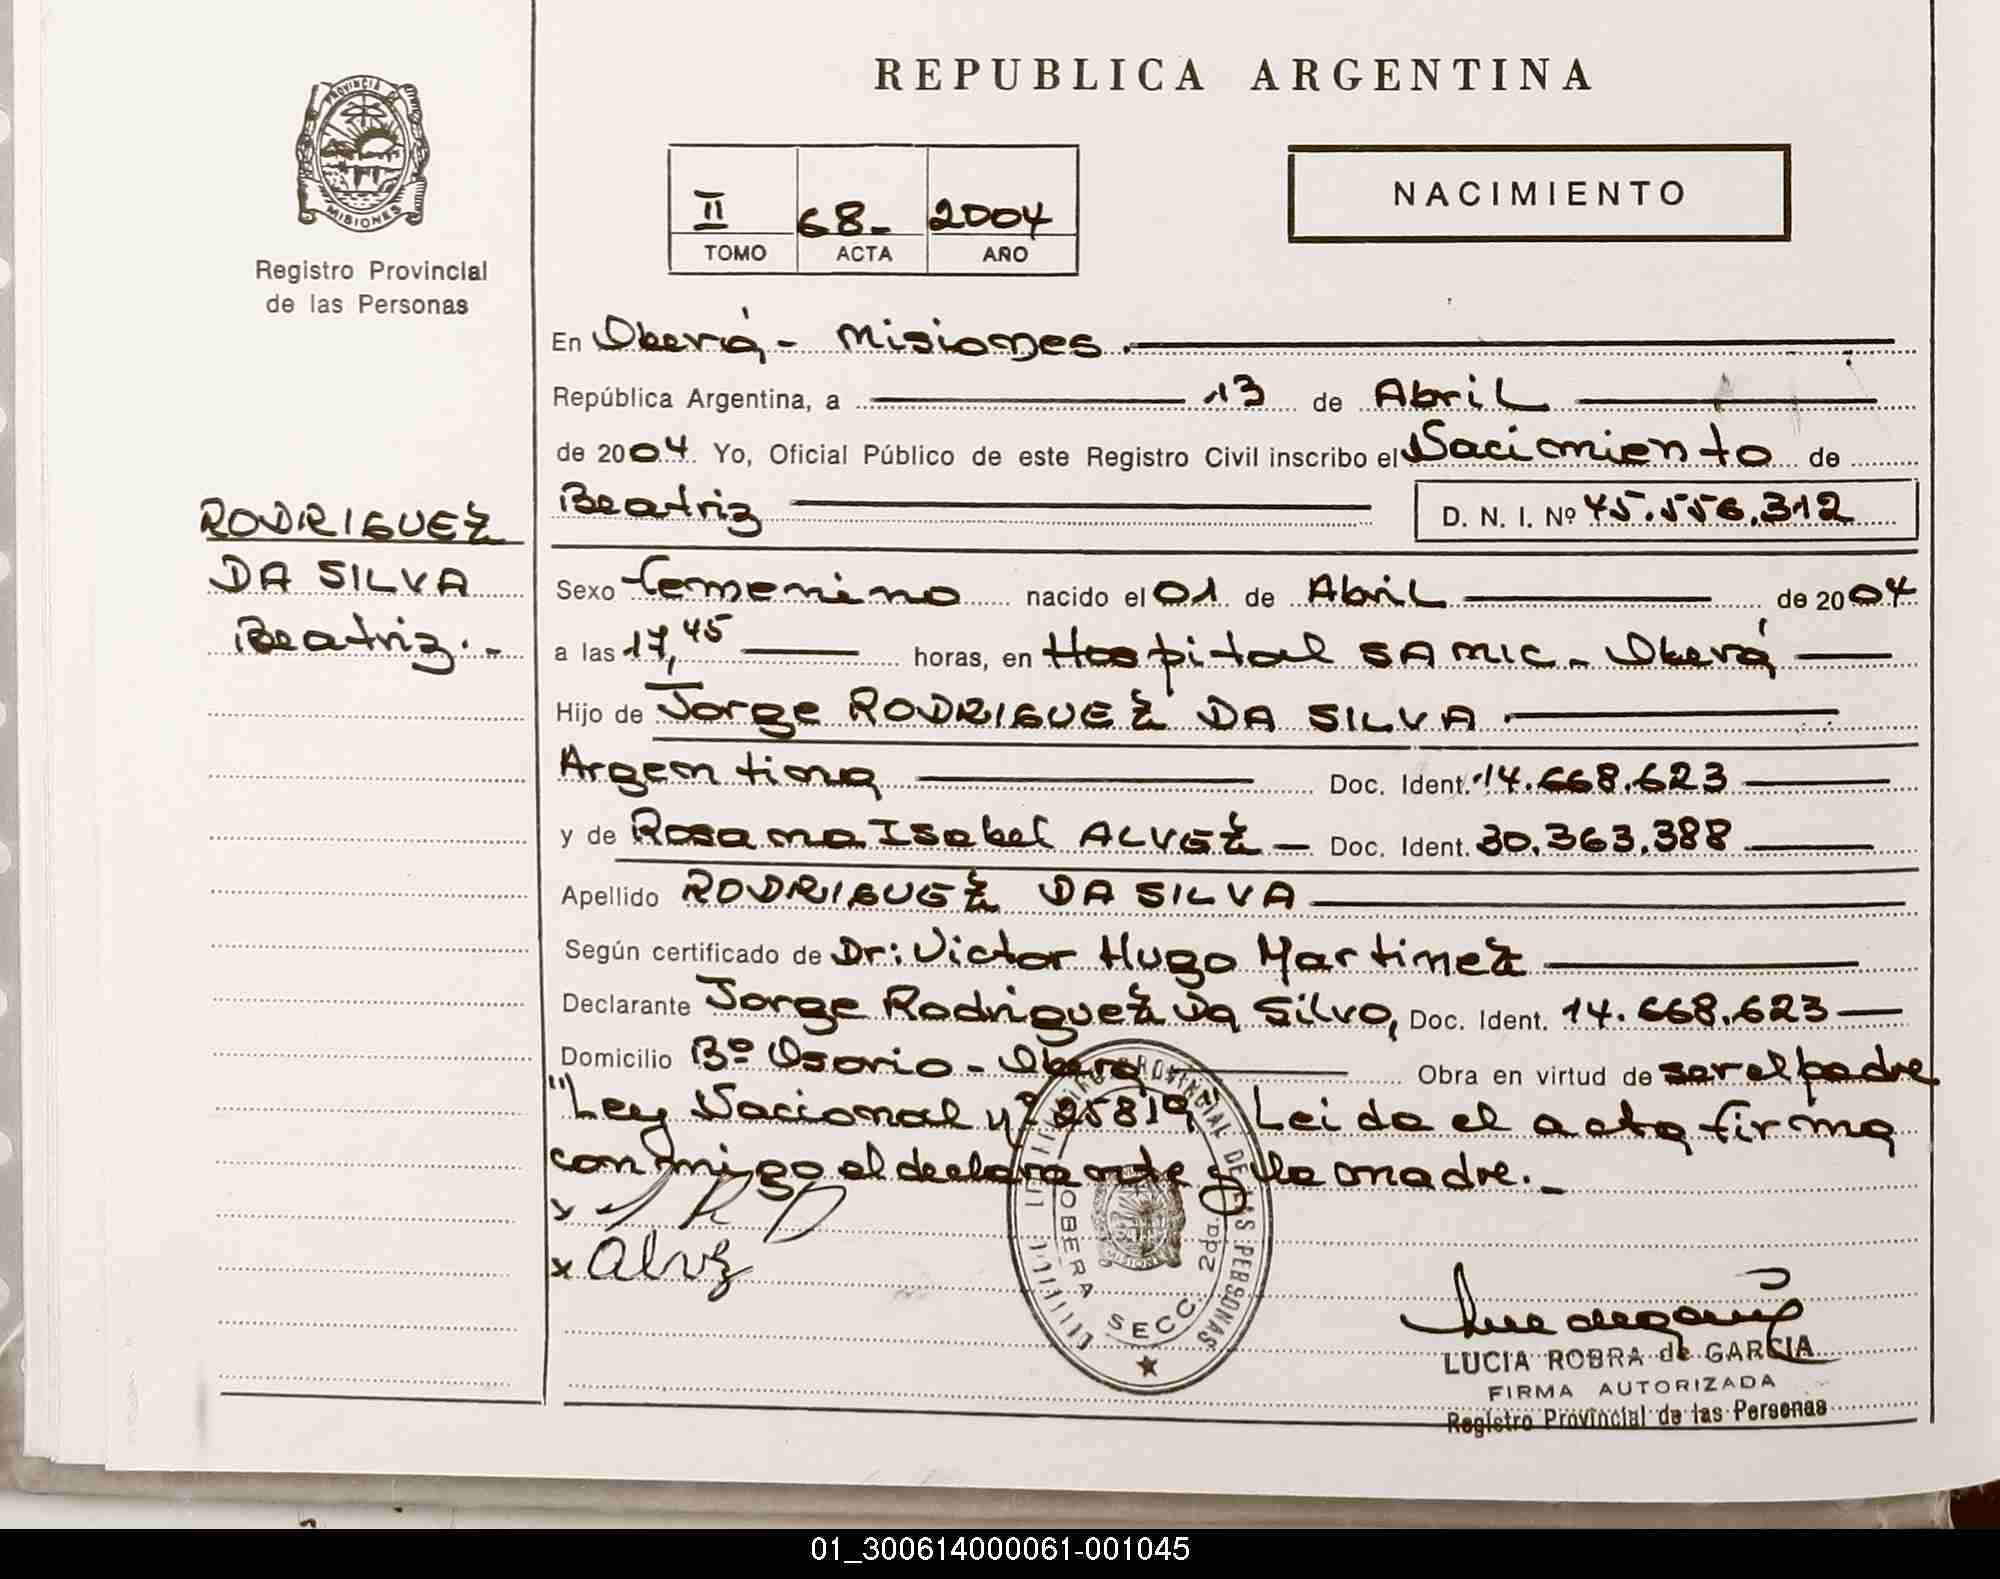 REPUBLICA ARGENTINA
PROVINCIA DE
MISIONES
Registro Provincial
de las Personas
NACIMIENTO
II 68- 2004
TOMO ACTA AÑO
RODRIGUEZ
DA SILVA
Beatriz.-
En Oberá - Misiones.
República Argentina, a 13 de Abril
de 2004. Yo, Oficial Público de este Registro Civil inscribo el Nacimiento de
Beatriz D. N. I. Nº 45.556.312
Sexo femenino nacido el 01 de Abril de 2004
a las 17,45 horas, en Hospital SAMIC - Oberá
Hijo de Jorge RODRIGUEZ DA SILVA.
Argentina Doc. Ident. 14.668.623
y de Rosana Isabel ALVEZ - Doc. Ident. 30.363.388
Apellido RODRIGUEZ DA SILVA
Según certificado de Dr: Victor Hugo Martinez
Declarante Jorge Rodriguez Da Silva, Doc. Ident. 14.668.623
Domicilio Bº Osorio - Oberá Obra en virtud de ser el padre
"Ley Nacional nº 25819" Leida el acta firma
conmigo el declarante y la madre.-
x
x Alvez
PROVINCIAL DE LAS PERSONAS
OBERA SECC. 2da.
LUCIA ROBRA de GARCIA
FIRMA AUTORIZADA
Registro Provincial de las Personas
01_300614000061-001045